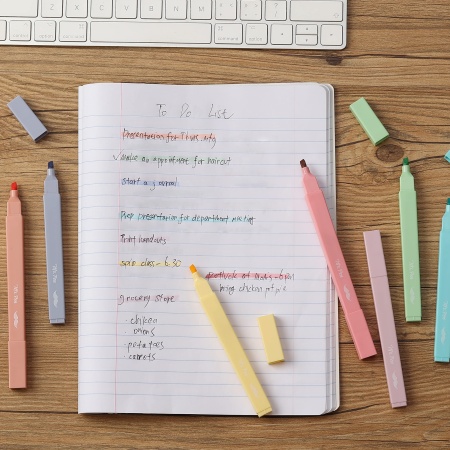 To Do List
Presentation for
make an appointment for haircut
start a journal
Prep presentation for department meeting
Print handouts
spin class - 6:30
potluck at
bring chicken pot pie
grocery store
- chicken
onions
- potatoes
- carrots